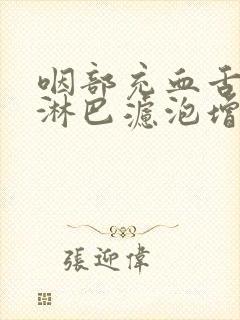 咽部充血舌
淋巴濾泡增
張迎偉